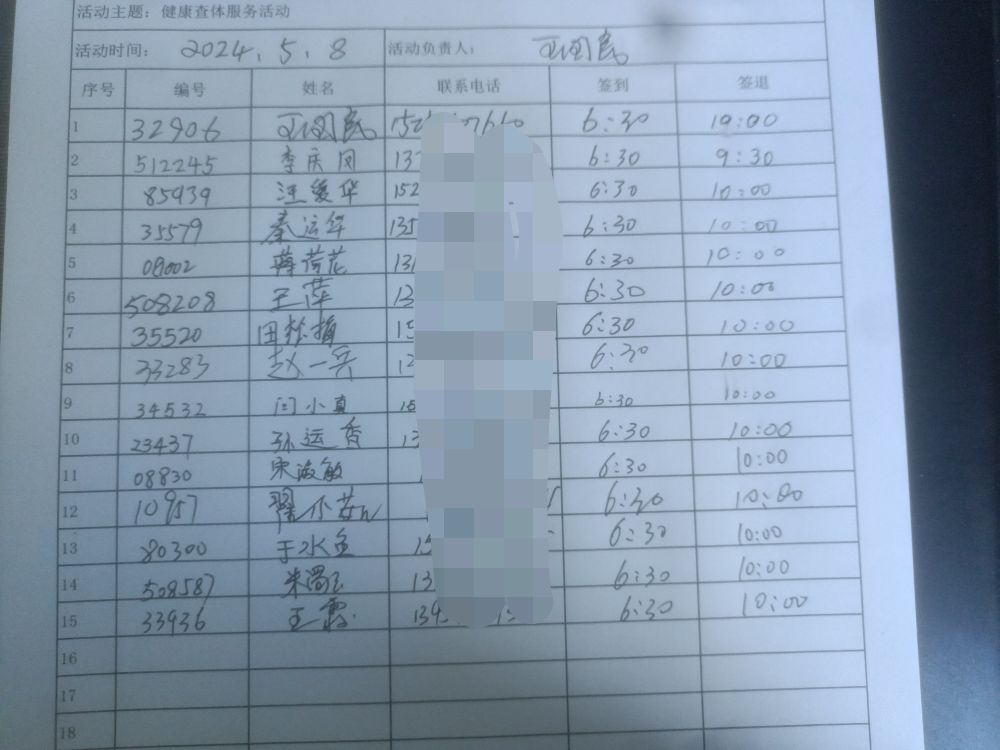 活动主题：健康查体服务活动
活动时间： 2024.5.8 活动负责人： 王国民
序号 编号 姓名 联系电话 签到 签退
1 32906 王国民 6:30 10:00
2 512245 李庆凤 137 6:30 9:30
3 85939 汪爱华 152 6:30 10:00
4 35579 秦运华 135 6:30 10:00
5 08002 薛荷花 131 6:30 10:00
6 508208 王萍 13 6:30 10:00
7 35520 田 15 6:30 10:00
8 33283 赵一兵 6:30 10:00
9 34532 闫小真 15 6:30 10:00
10 23437 孙运香 13 6:30 10:00
11 08830 宋海敏 6:30 10:00
12 10957 翟小 6:30 10:00
13 80300 于水 15 6:30 10:00
14 508587 朱 13 6:30 10:00
15 33936 王霞 6:30 10:00
16
17
18